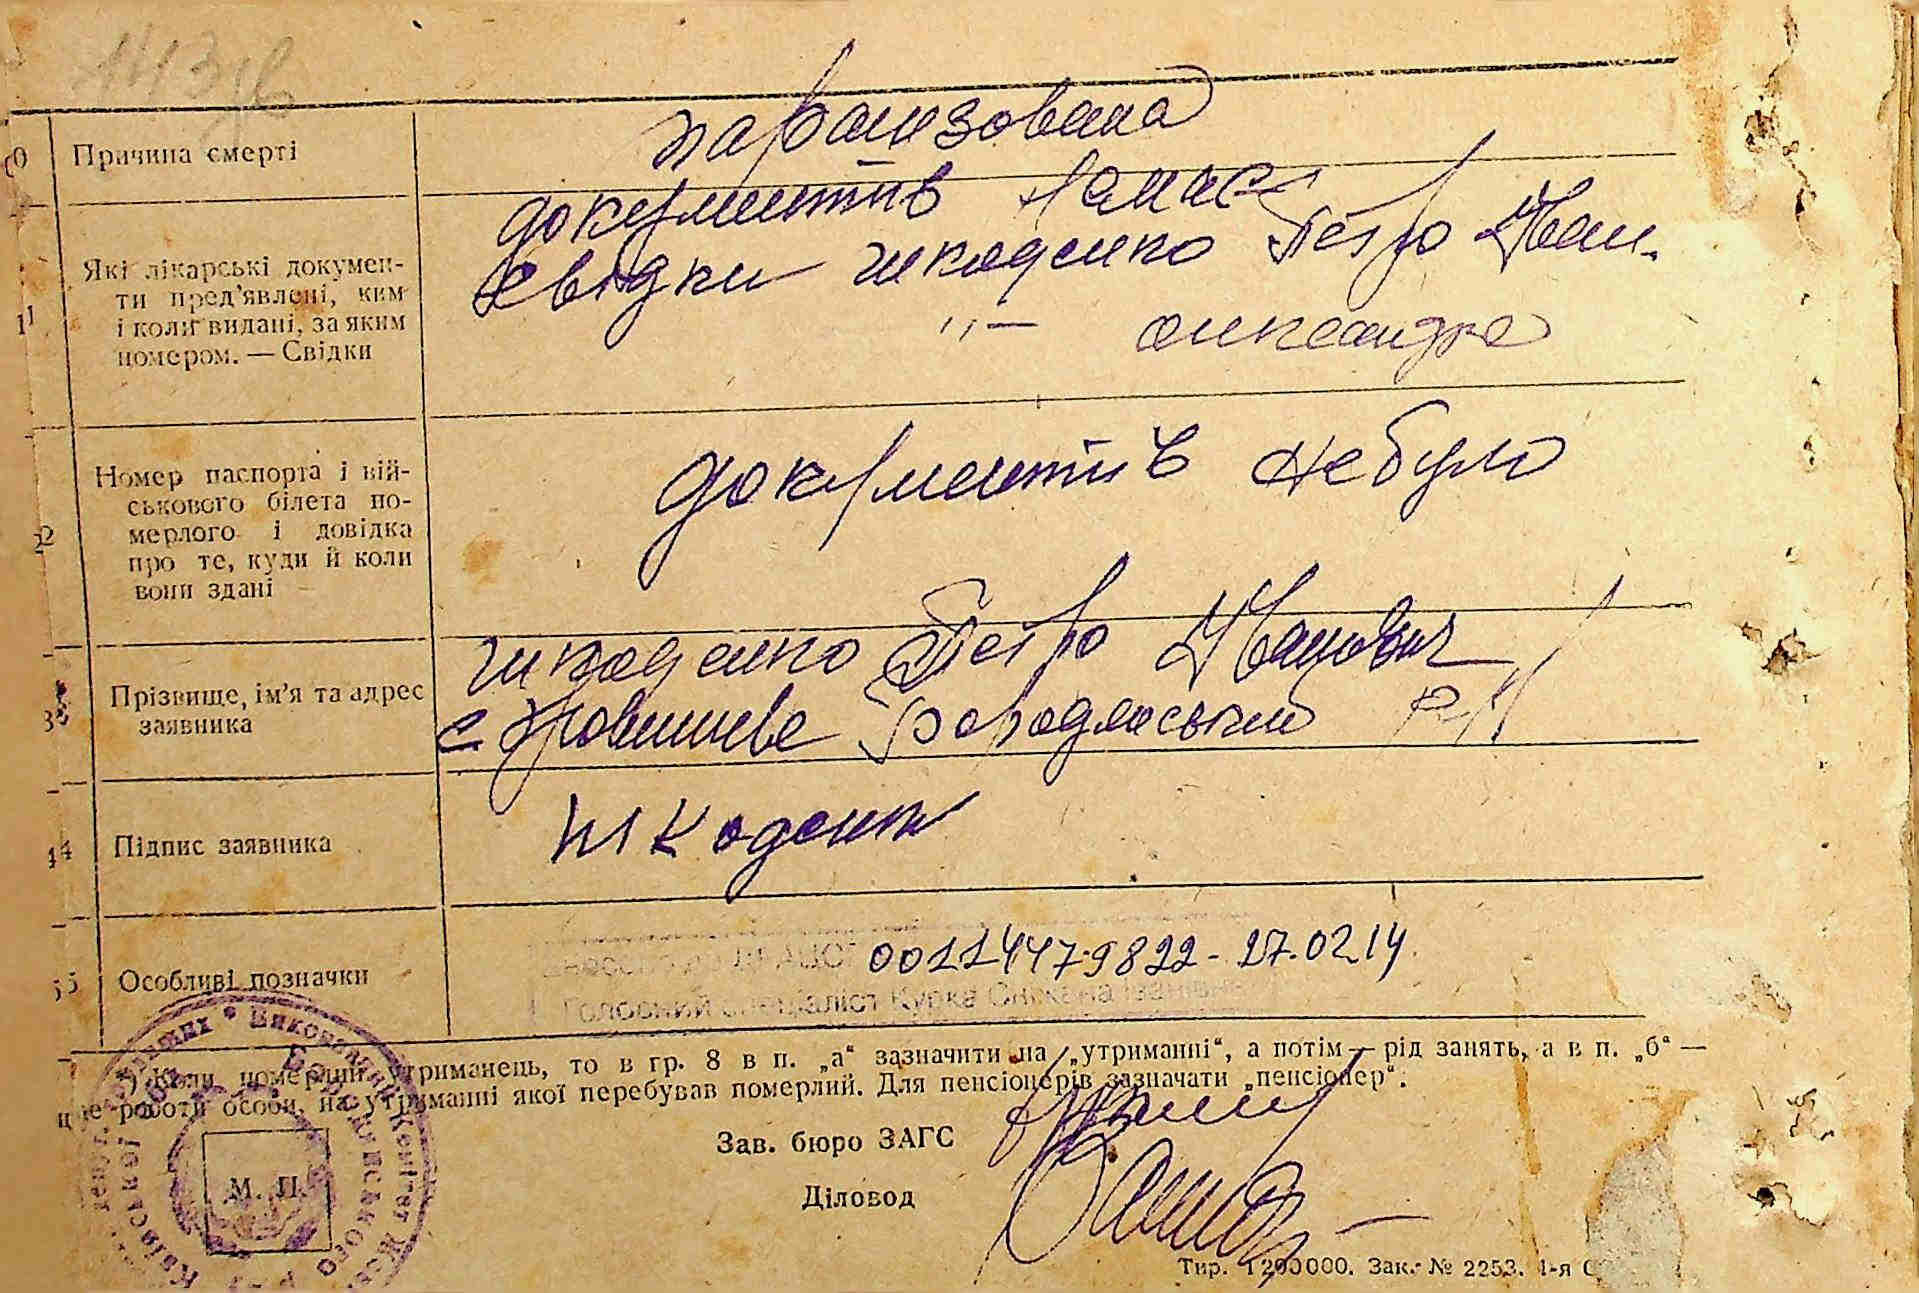 10 Причина смерті
паралізована
11 Які лікарські докумен-
ти пред'явлені, ким
і коли видані, за яким
номером. — Свідки
документів немає
свідки Шкоденко Петро Іван.
„— олександра
Номер паспорта і вій-
ськового білета по-
мерлого і довідка
про те, куди й коли
вони здані
документів небуло
Прізвище, ім'я та адрес
заявника
Шкоденко Петро Іванович
с Бородянський р-н
Підпис заявника
Шкоденко
Особливі позначки
00114479822- 27.0214.
Головний спеціаліст Курка Сніжана Іванівна
*) Коли померлий утриманець, то в гр. 8 в п. „а“ зазначити „на утриманні“, а потім — рід занять, а в п. „б“ —
роботи особи, на утриманні якої перебував померлий. Для пенсіонерів зазначати „пенсіонер“.
Зав. бюро ЗАГС
Діловод
М. П.
Виконавчий Комітет
Бородянського
Київської
Тир. 1200000. Зак. № 2253. 1-я